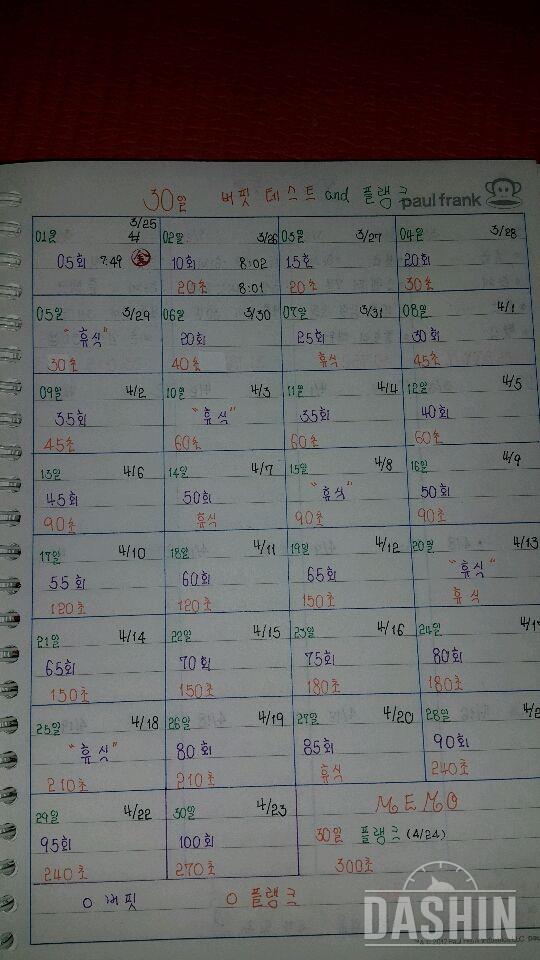 30일 버핏 테스트 and 플랭크
paul frank
01일 3/25
05회 7:49
02일 3/26
10회 8:02
20초 8:01
03일 3/27
15회
20초
04일 3/28
20회
30초
05일 3/29
"휴식"
30초
06일 3/30
20회
40초
07일 3/31
25회
휴식
08일 4/1
30회
45초
09일 4/2
35회
45초
10일 4/3
"휴식"
60초
11일 4/4
35회
60초
12일 4/5
40회
60초
13일 4/6
45회
90초
14일 4/7
50회
휴식
15일 4/8
"휴식"
90초
16일 4/9
50회
90초
17일 4/10
55회
120초
18일 4/11
60회
120초
19일 4/12
65회
150초
20일 4/13
"휴식"
휴식
21일 4/14
65회
150초
22일 4/15
70회
150초
23일 4/16
75회
180초
24일
80회
180초
25일 4/18
"휴식"
210초
26일 4/19
80회
210초
27일 4/20
85회
휴식
28일
90회
240초
29일 4/22
95회
240초
30일 4/23
100회
270초
MEMO
30일 플랭크 (4/24)
300초
O 버핏 O 플랭크
DASHIN